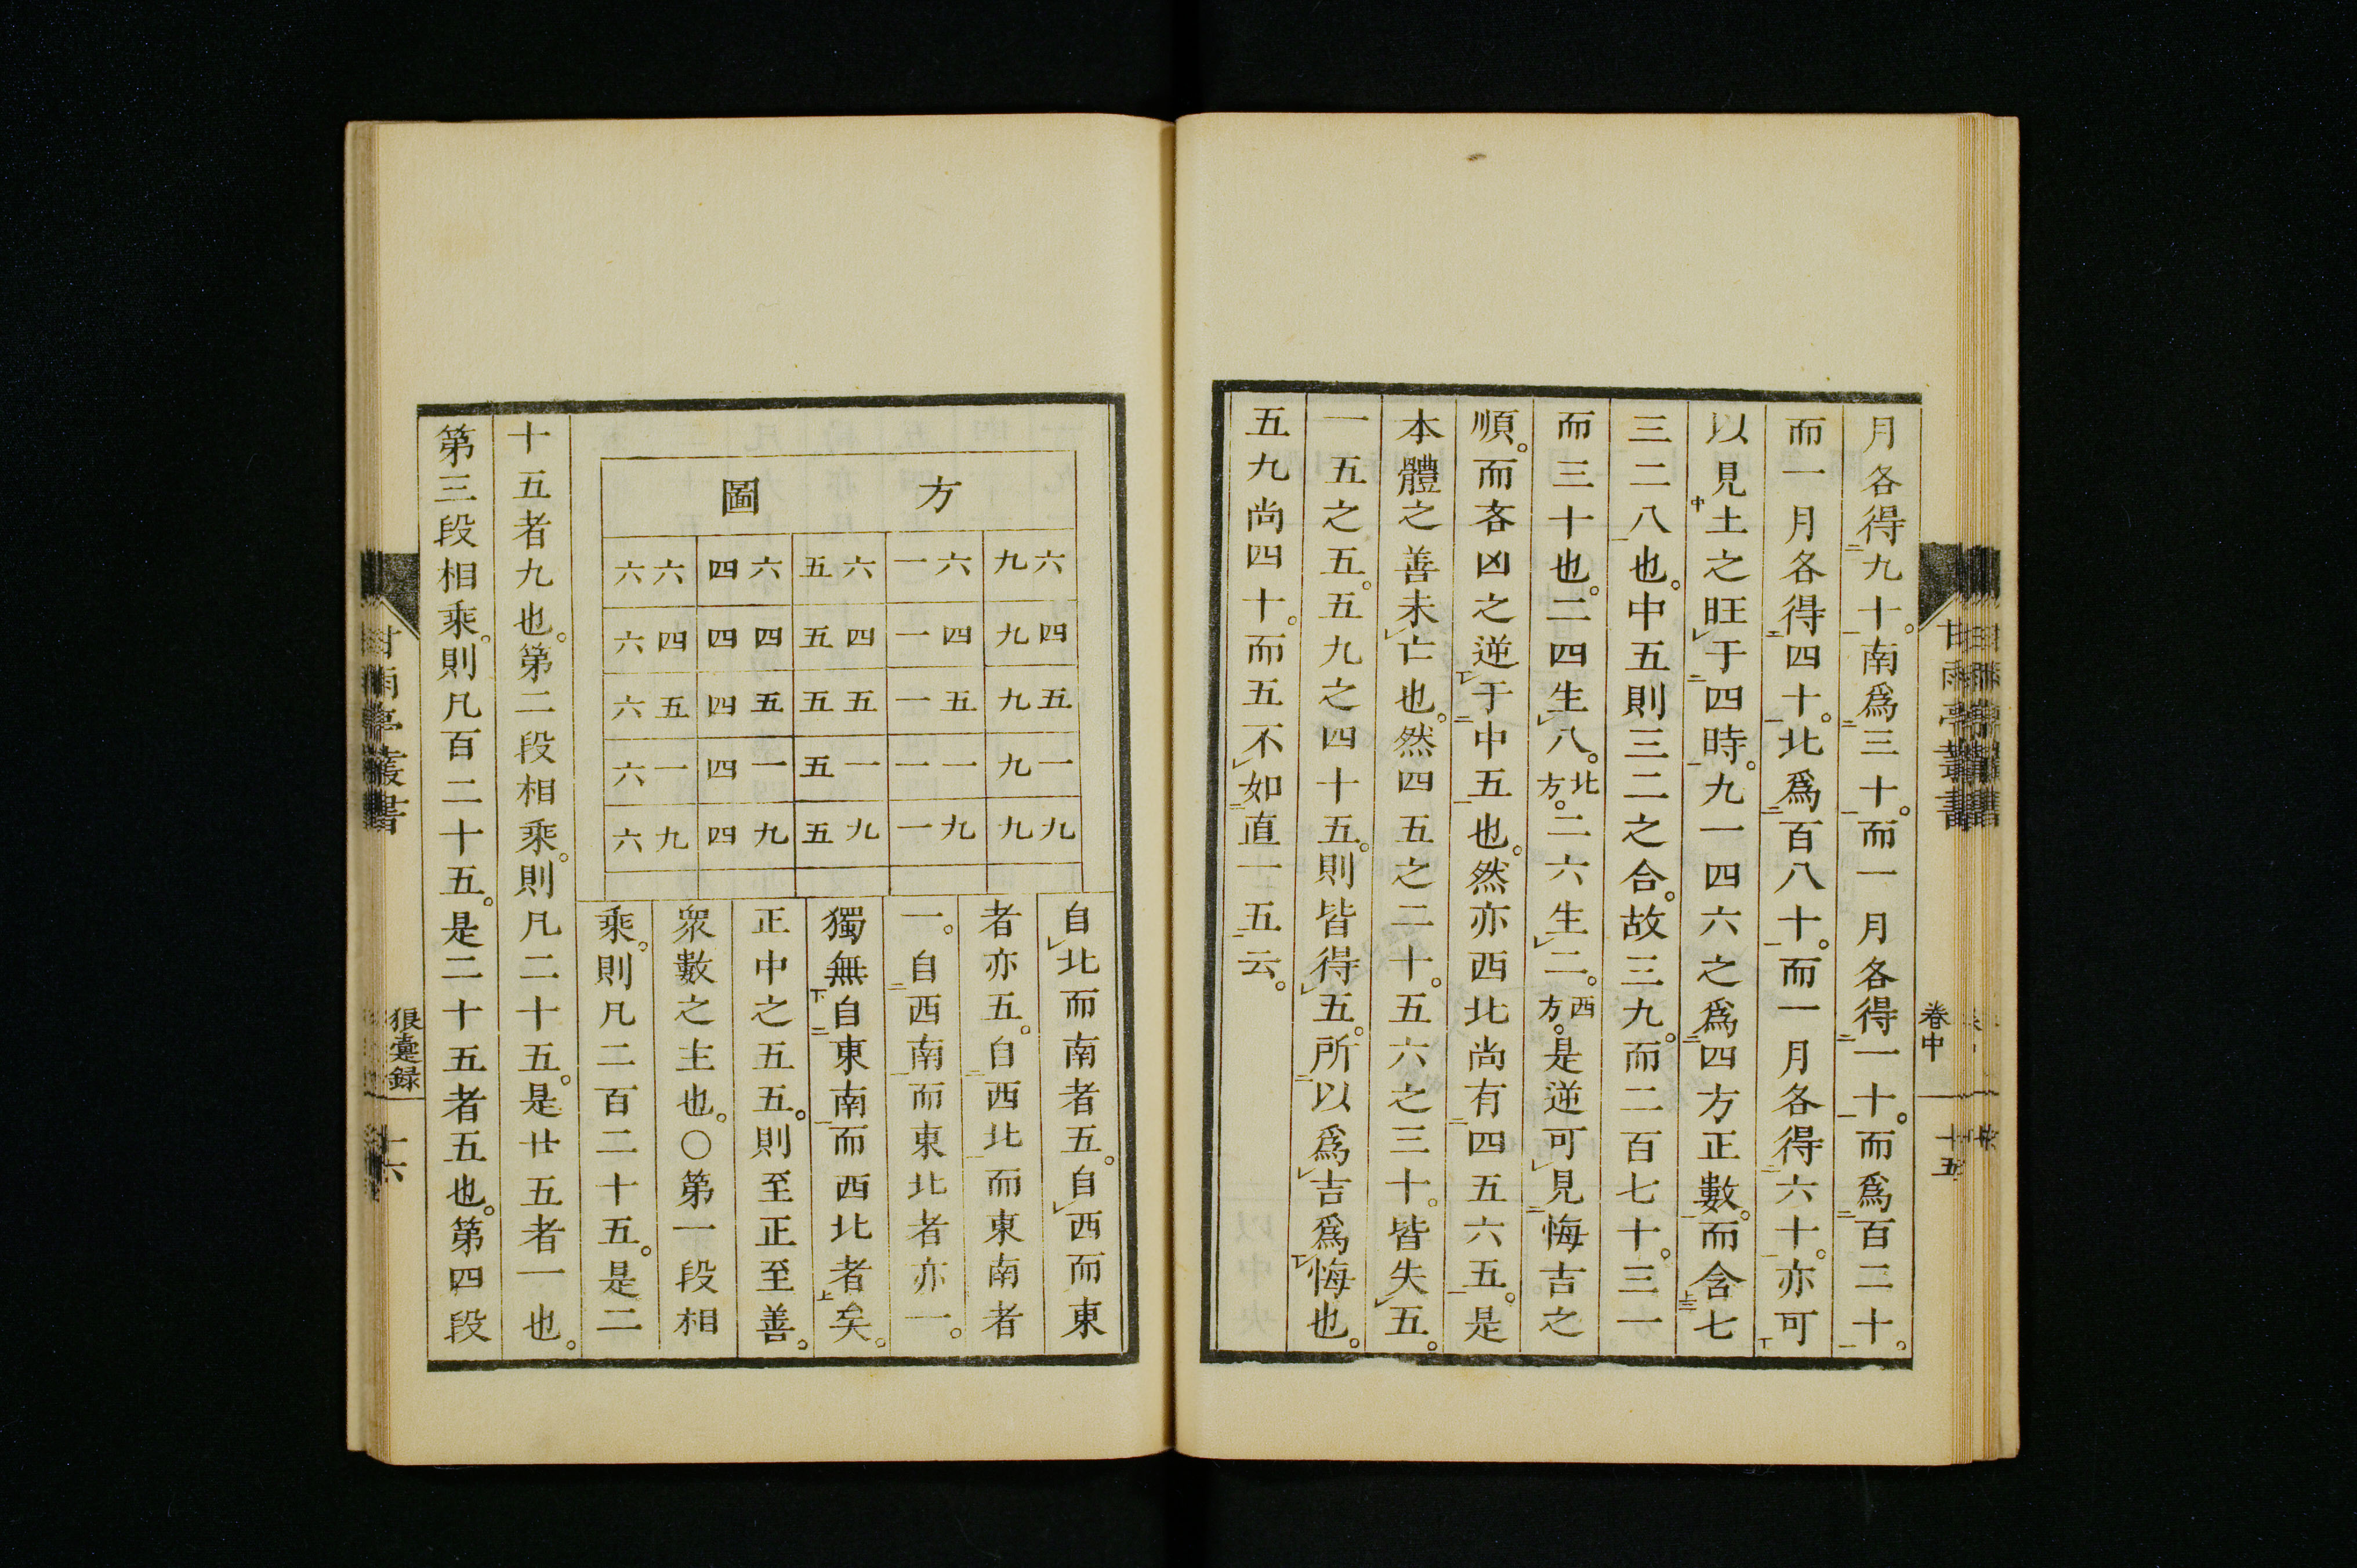 月各得九十。南爲三十。而一月各得一十。而爲百二十。
而一月各得四十。北爲百八十。而一月各得六十。亦可
以見土之旺于四時。九一四六之爲四方正數。而含七
三二八也。中五則三二之合。故三九。而二百七十。三一
而三十也。二四生八。北方。二六生二。西方。是逆可見悔吉之
順。而吝凶之逆于中五也。然亦西北尚有四五六五。是
本體之善未亡也。然四五之二十。五六之三十。皆失五。
一五之五。五九之四十五。則皆得五。所以爲吉爲悔也。
五九尚四十。而五不如直一五云。
甘雨亭叢書
卷中
十五
方圖
六九 六一 六五 六四 六六
四九 四一 四五 四四 四六
五九 五一 五五 五四 五六
一九 一一 一五 一四 一六
九九 九一 九五 九四 九六
自北而南者五。自西而東
者亦五。自西北而東南者
一。自西南而東北者亦一。
獨無自東南而西北者矣。
正中之五五。則至正至善。
衆數之主也。○第一段相
乘。則凡二百二十五。是二
十五者九也。第二段相乘。則凡二十五。是廿五者一也。
第三段相乘。則凡百二十五。是二十五者五也。第四段
甘雨亭叢書
狼疐録
十六